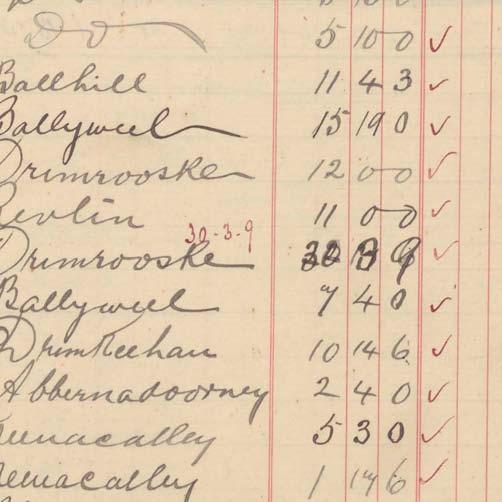 Do 5 10 0 ✓
Ballhill 11 4 3 ✓
Ballyweel 15 19 0 ✓
Drimrooske 12 0 0 ✓
Revlin 11 0 0 ✓
30-3-9
Drumrooske 30 3 9 ✓
Ballyweel 7 4 0 ✓
Drimkeehan 10 14 6 ✓
Abbernadoorney 2 4 0 ✓
5 3 0 ✓
1 14 6 ✓